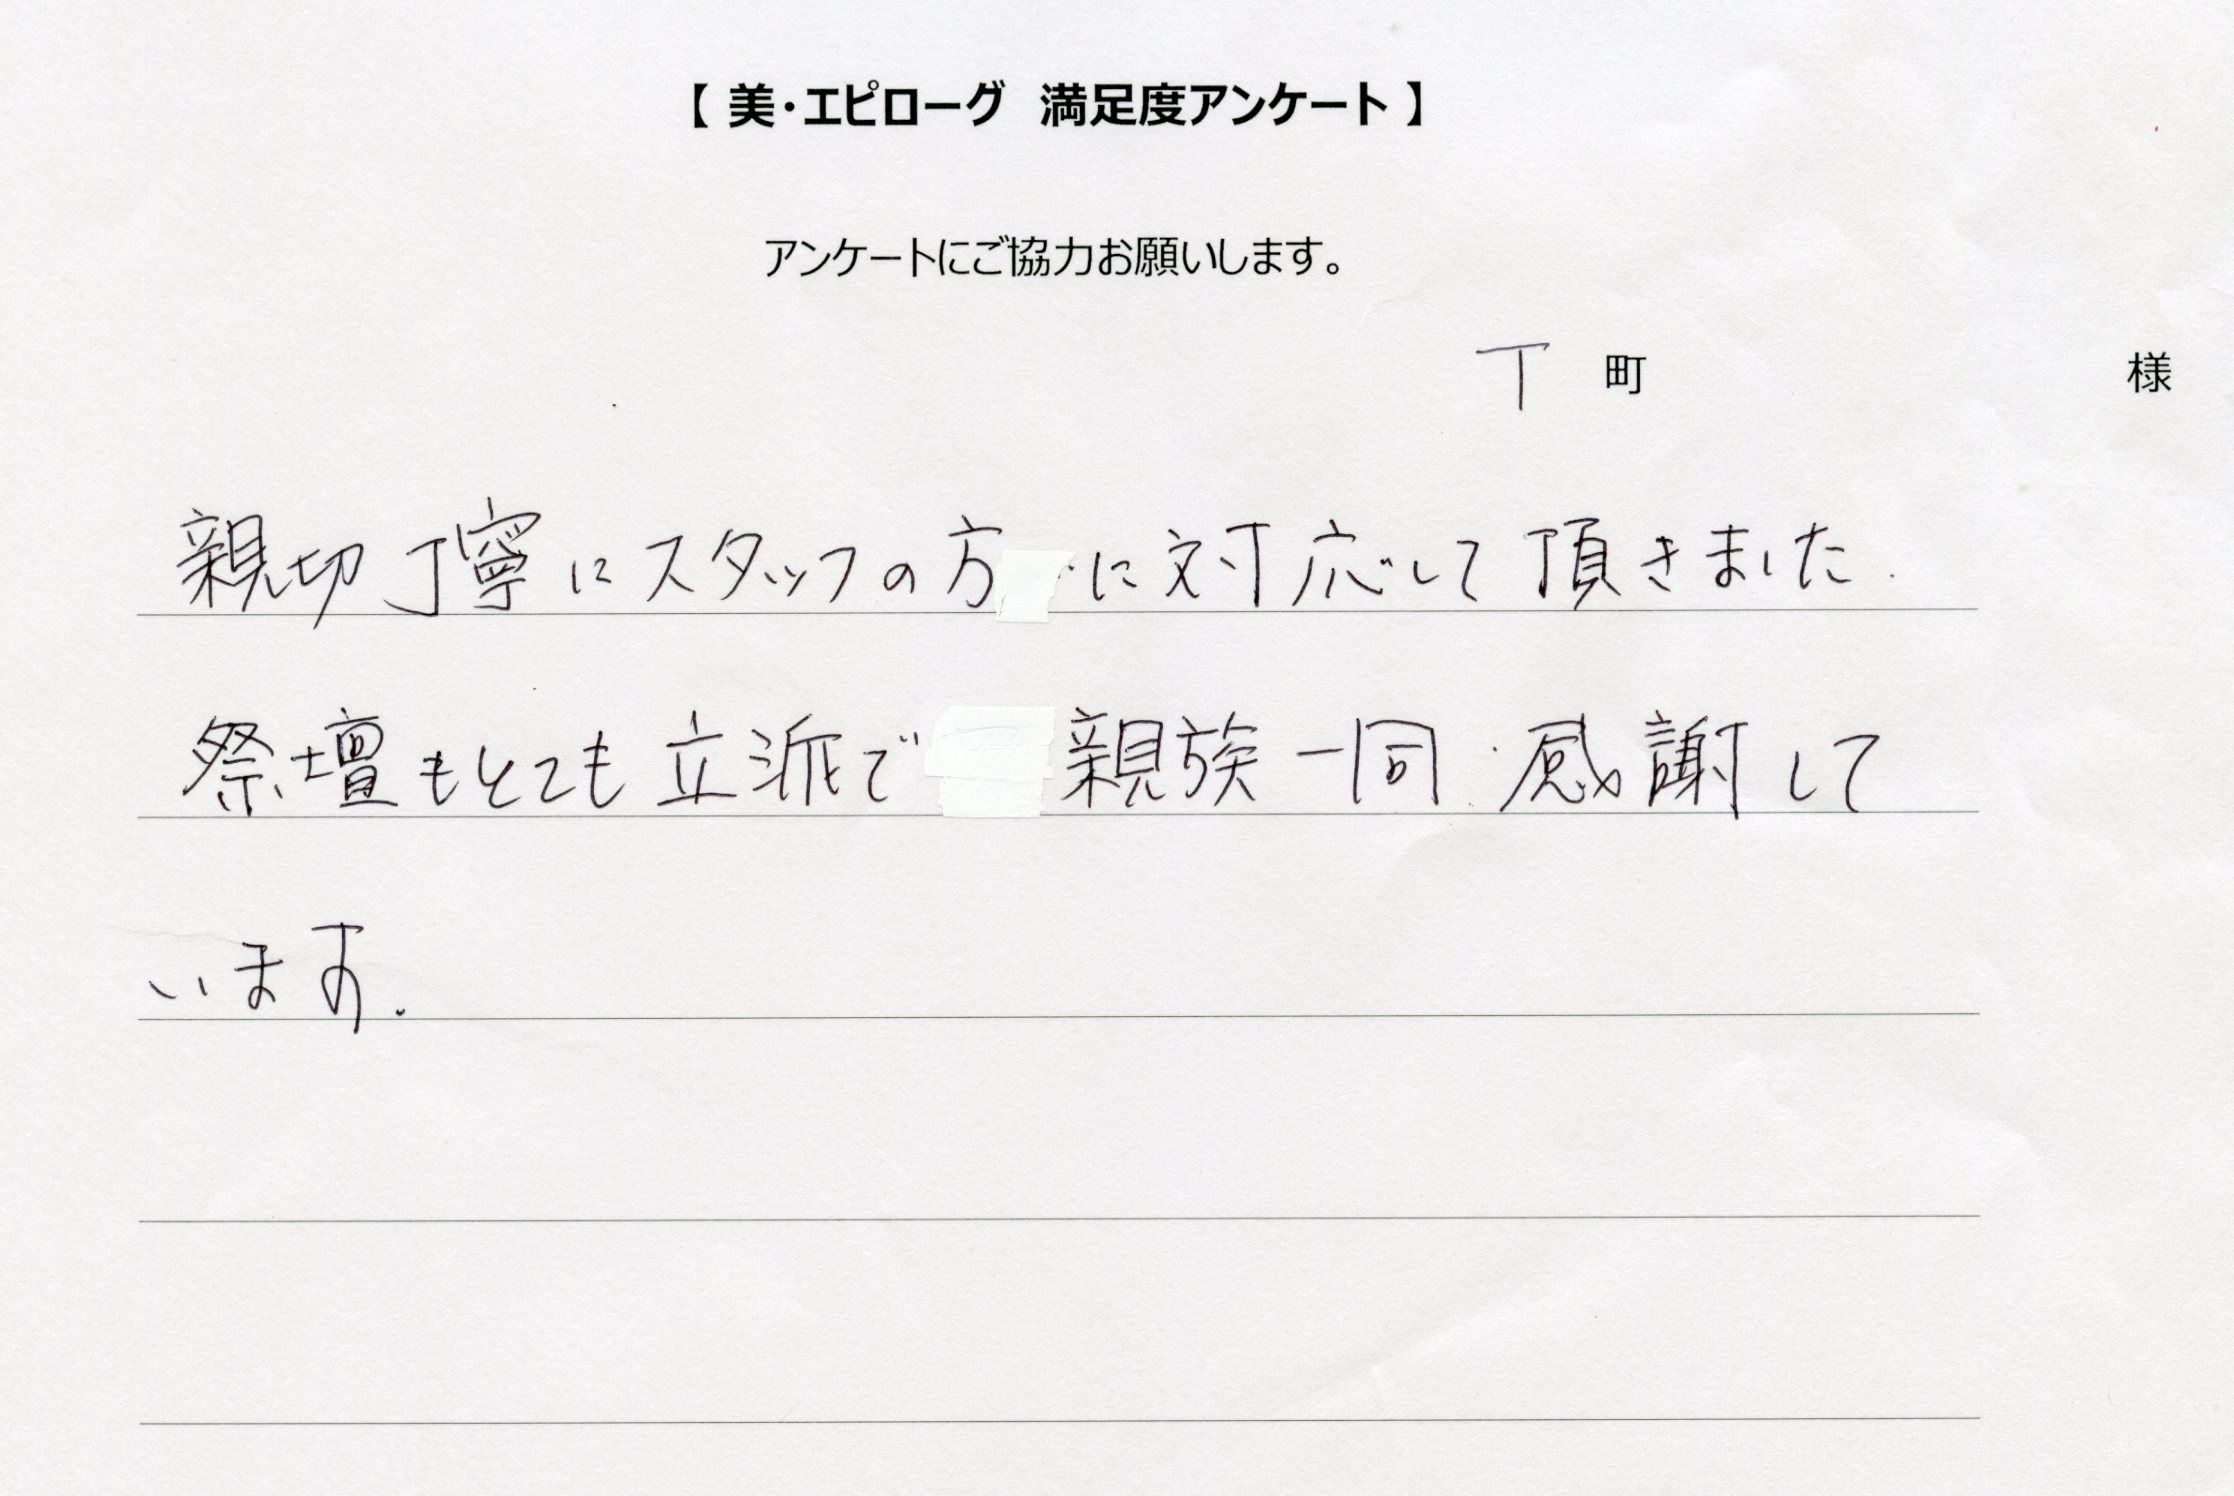 【 美・エピローグ　満足度アンケート 】
アンケートにご協力お願いします。
T 町　　　様
親切丁寧にスタッフの方に対応して頂きました.
祭壇もとても立派で 親族一同 感謝して
います.